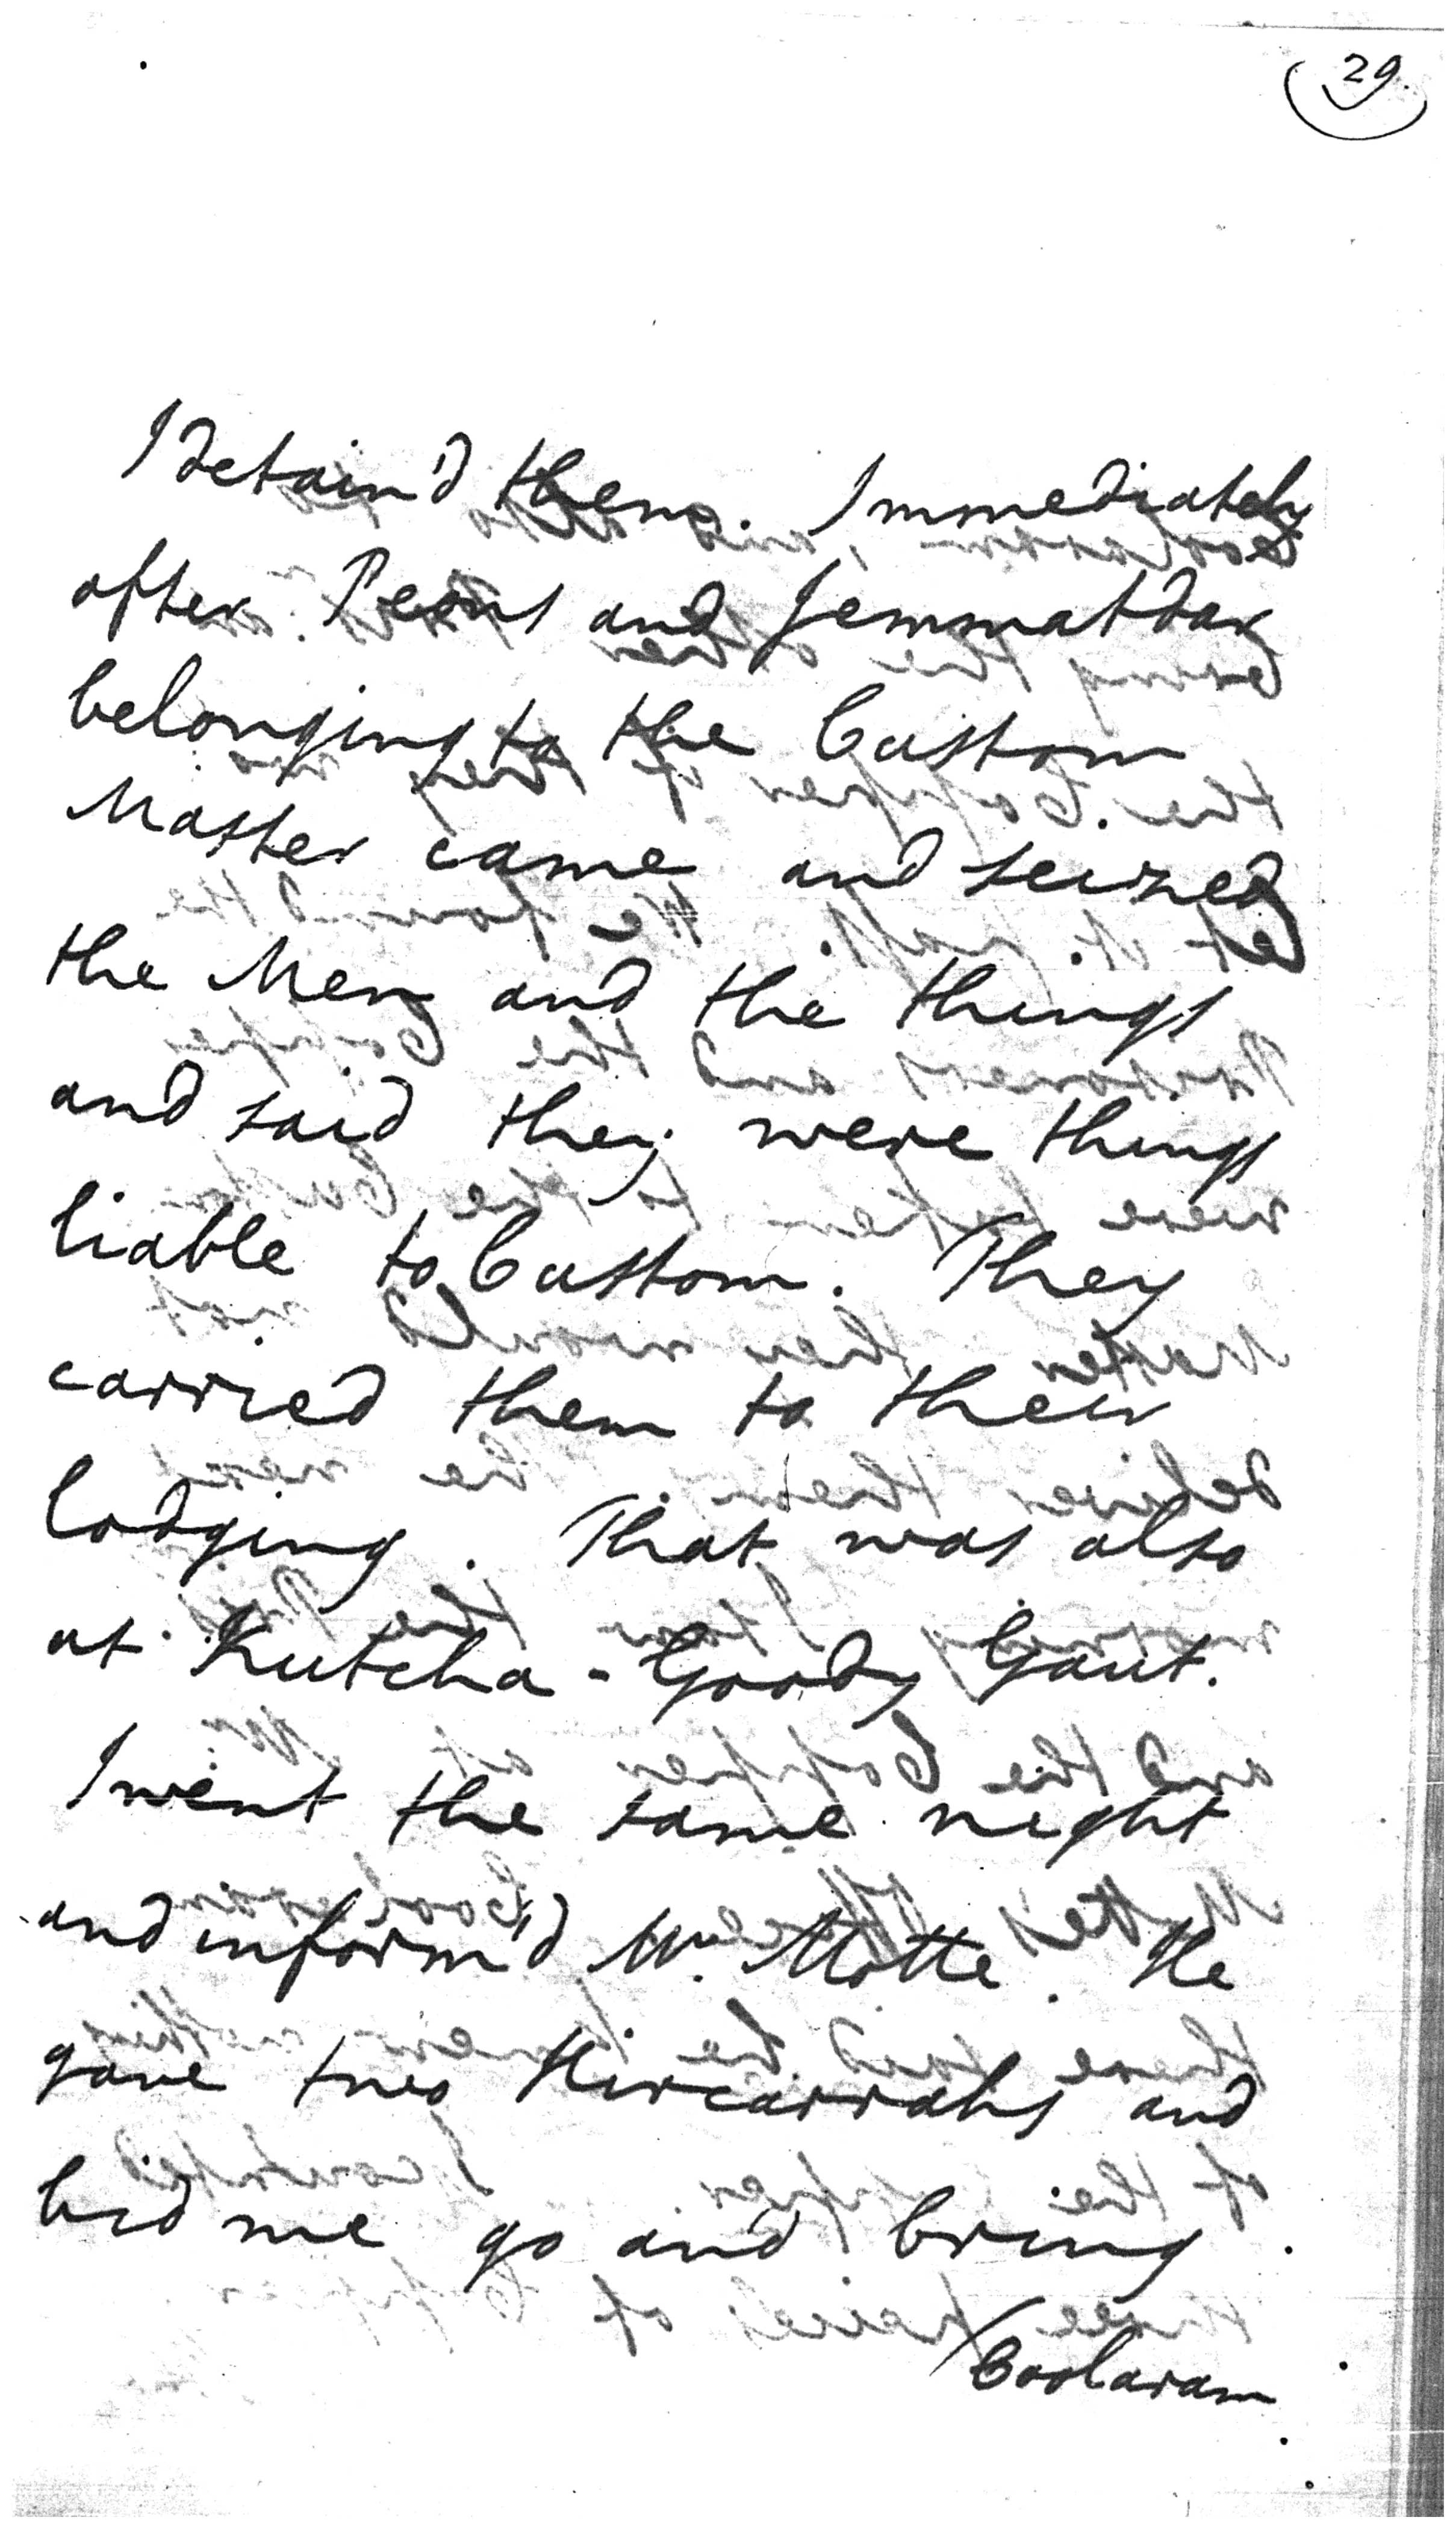 29.
I detain'd them. Immediately
after Peons and Jemmatdar
belonging to the Custom
Master came and seized
the Men and the things
and said they were things
liable to Custom. They
carried them to their
lodging. That was also
at Kutcha-Goody Gaut.
I went the same night
and inform'd Mr. Motte. He
gave two Hircarrahs and
bid me go and bring
/Boolaram